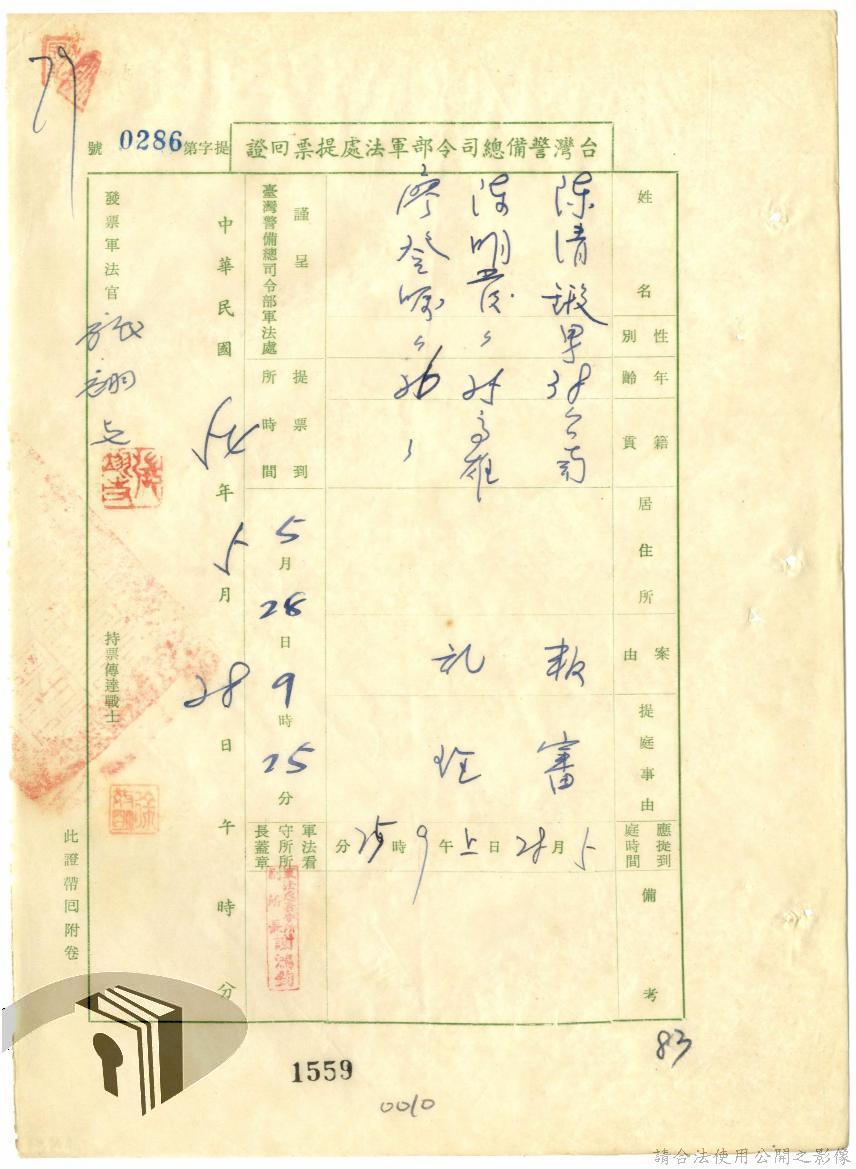 79
台灣警備總司令部軍法處提票回證
提字第0286號
姓名
性別
年齡
籍貫
居住所
案由
提庭事由
應提到庭時間
備考
陳清
男
38
台南
明
25
高雄
廖登
26
叛
亂
審
理
5月28日上午9時25分
謹呈
臺灣警備總司令部軍法處
提票到所時間
5月28日9時25分
軍法看守所所長蓋章
副所長謝鴻鈞
中華民國54年5月28日午時分
發票軍法官
持票傳達戰士
此證帶回附卷
1559
0010
83
請合法使用公開之影像